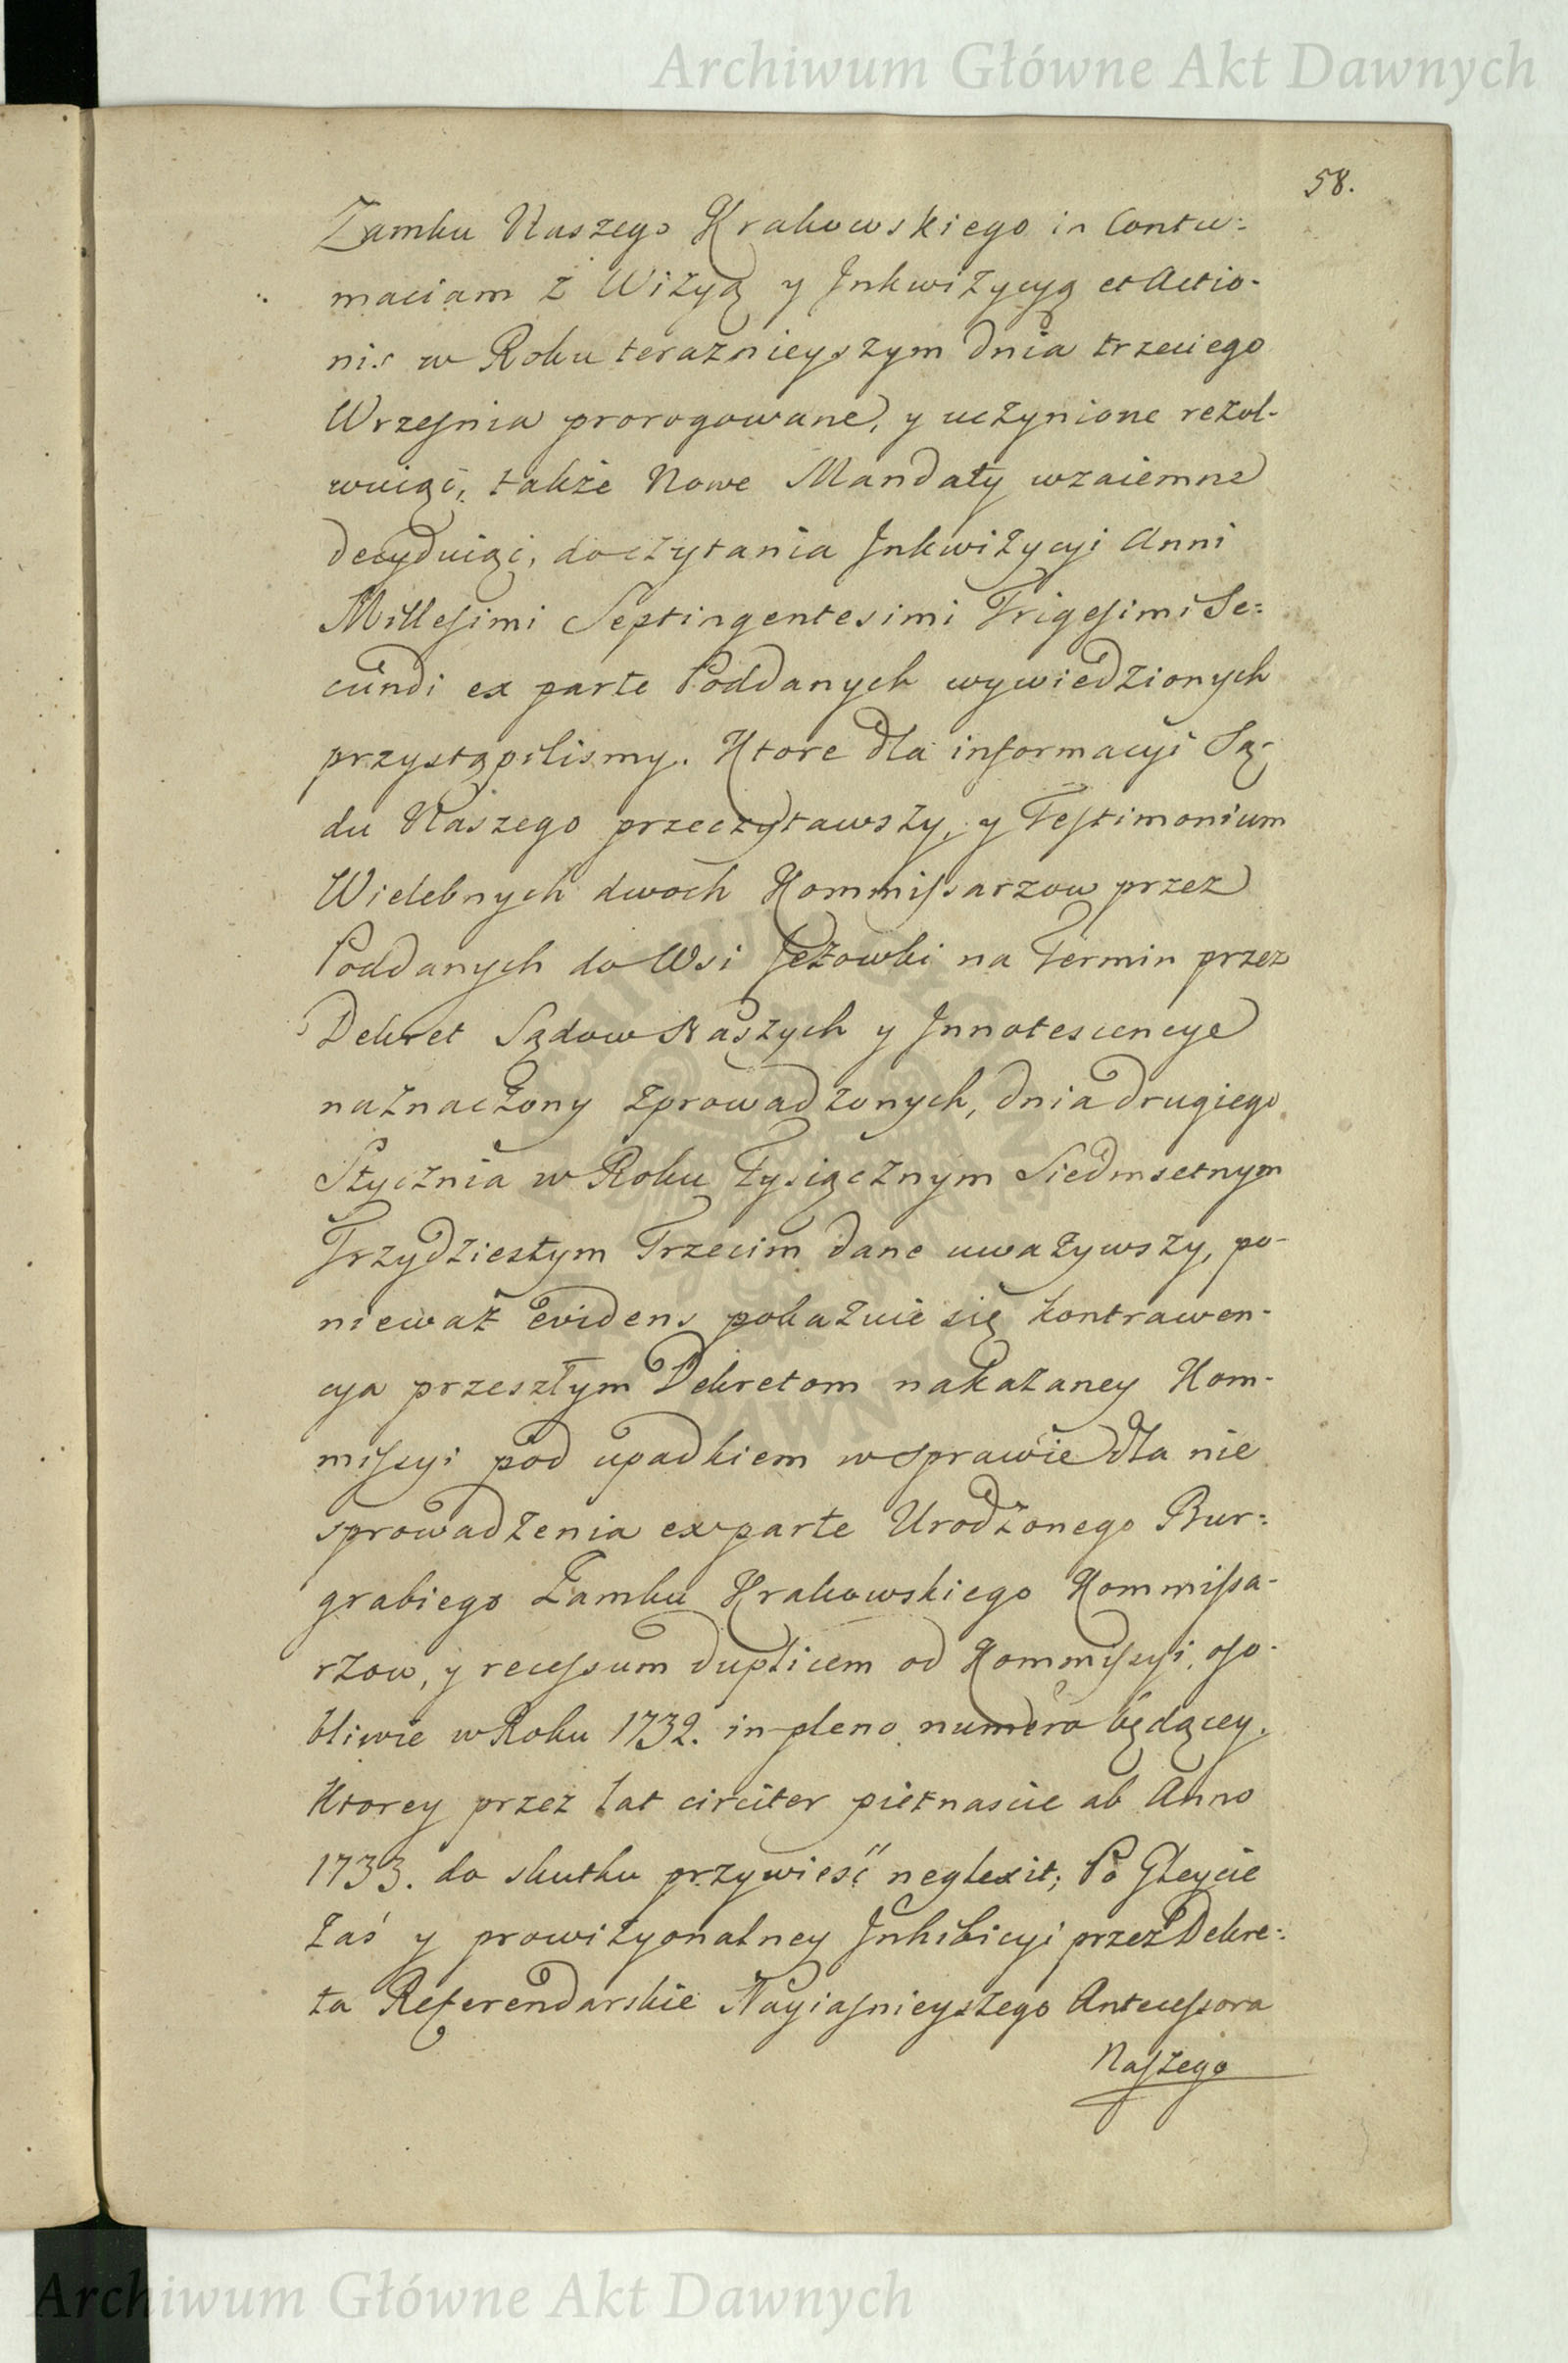 Archiwum Główne Akt Dawnych
58.
Zamku Naszego Krakowskiego in Contu:
maciam z Wizyą y Jnkwizycyą et Actio-
nis w Roku teraznieyszym dnia trzeciego
Wrzesnia prorogowane, y uczynione rezol-
wuiąc, także Nowe Mandaty wzaiemne
decyduiąc, do czytania Jnkwizycyi Anni
Millesimi Septingentesimi Trigesimi Se:
cundi ex parte Poddanych wywiedzionych
przystąpilismy. Ktore dla informacyi Są-
du Naszego przeczytawszy, y Testimonium
Wielebnych dwoch Kommissarzow przez
Poddanych do Wsi Jeżowki na Termin przez
Dekret Sądow Naszych y Jnnotescencye
naznaczony zprowadzonych, dnia drugiego
Stycznia w Roku Tysiącznym Siedmsetnym
Trzydziestym Trzecim dane uważywszy, po-
nieważ evidens pokazuie się kontrawen-
cya przeszłym Dekretom nakazaney Kom-
missyi pod upadkiem w sprawie dla nie
sprowadzenia ex parte Urodzonego Bur:
grabiego Zamku Krakowskiego Kommissa-
rzow, y recessum duplicem od Kommissyi, oso-
bliwie w Roku 1732. in pleno numero będącey.
Ktorey przez lat circiter pietnascie ab Anno
1733. do skutku przywieść neglexit; Po Gleycie
zaś y prowizyonalney Jnhibicyi przez Dekre:
ta Referendarskie Nayiasnieyszego Antecessora
Naszego
Archiwum Główne Akt Dawnych